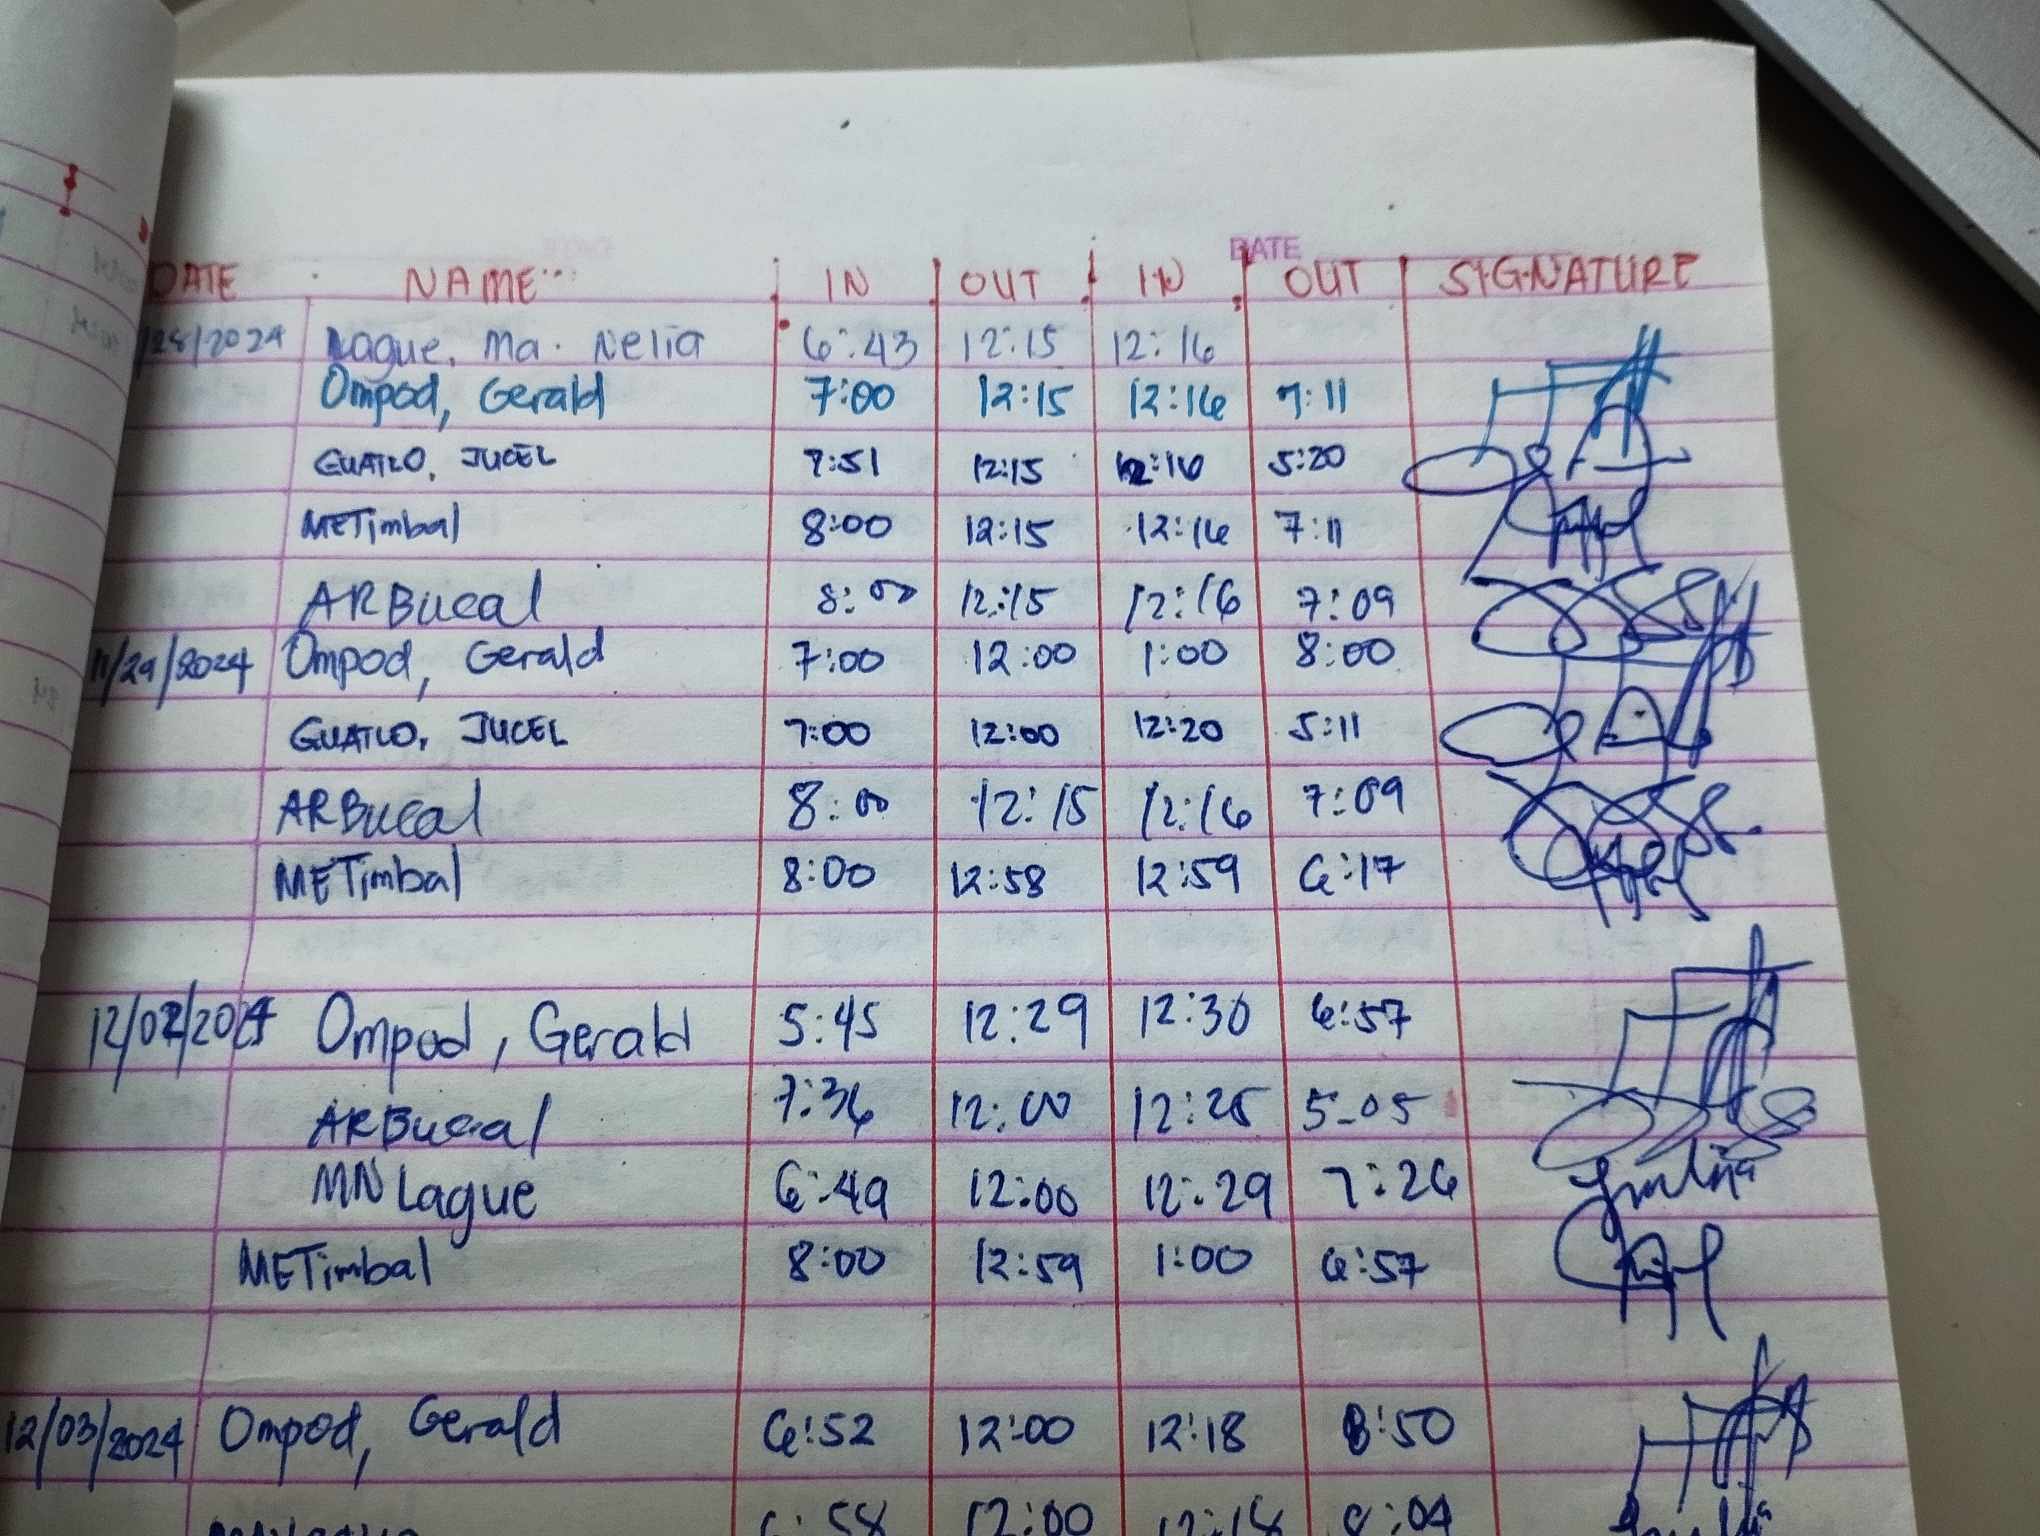 DATE
DATE NAME IN OUT IN OUT SIGNATURE
/28/2024 Lague, Ma. Nelia 6:43 12:15 12:16
Ompod, Gerald 7:00 12:15 12:16 7:11
GUATLO, JUCEL 7:51 12:15 12:16 5:20
METimbal 8:00 12:15 12:16 7:11
ARBucal 8:00 12:15 12:16 7:09
11/29/2024 Ompod, Gerald 7:00 12:00 1:00 8:00
GUATLO, JUCEL 7:00 12:00 12:20 5:11
ARBucal 8:00 12:15 12:16 7:09
METimbal 8:00 12:58 12:59 6:17
12/02/2024 Ompod, Gerald 5:45 12:29 12:30 6:57
ARBucal 7:36 12:00 12:25 5-05
MN Lague 6:49 12:00 12:29 7:26
METimbal 8:00 12:59 1:00 6:57
12/03/2024 Ompod, Gerald 6:52 12:00 12:18 8:50
6:58 12:00 12:18